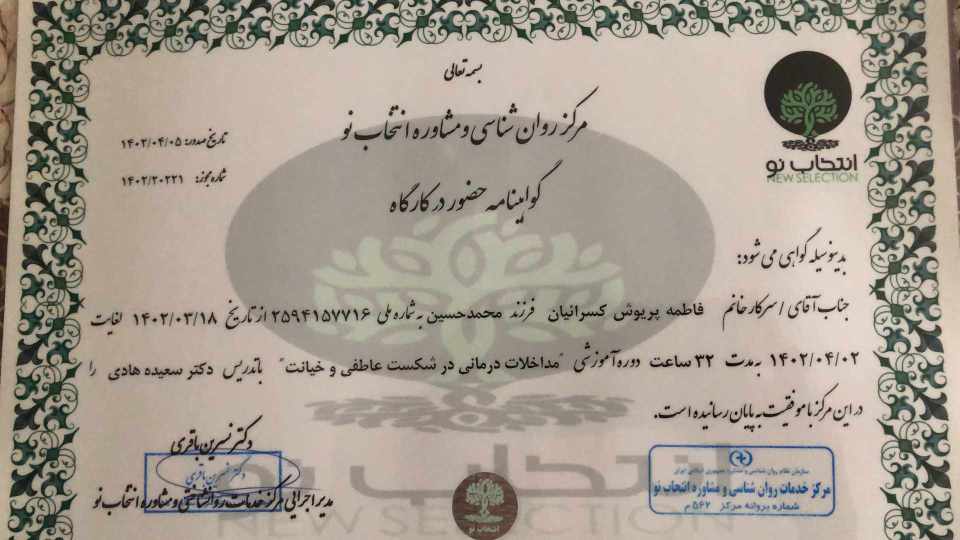 بسمه تعالی
مرکز روان شناسی و مشاوره انتخاب نو
تاریخ صدور: ۱۴۰۲/۰۴/۰۵
شماره مجوز: ۱۴۰۲/۲۰۲۲۱
انتخاب نو
NEW SELECTION
گواهینامه حضور در کارگاه
بدینوسیله گواهی می شود:
جناب آقای / سرکار خانم فاطمه پریوش کسرائیان فرزند محمدحسین به شماره ملی ۲۵۹۴۱۵۷۷۱۶ از تاریخ ۱۴۰۲/۰۳/۱۸ لغایت
۱۴۰۲/۰۴/۰۲ به مدت ۳۲ ساعت دوره آموزشی "مداخلات درمانی در شکست عاطفی و خیانت" با تدریس دکتر سعیده هادی را
در این مرکز با موفقیت به پایان رسانیده است.
دکتر نسرین باقری
دکتر نسرین باقری
مدیر اجرایی مرکز خدمات روانشناسی و مشاوره انتخاب نو
انتخاب نو
NEW SELECTION
انتخاب نو
سازمان نظام روان شناسی و مشاوره جمهوری اسلامی ایران
مرکز خدمات روان شناسی و مشاوره انتخاب نو
شماره پروانه مرکز ۵۶۲ م